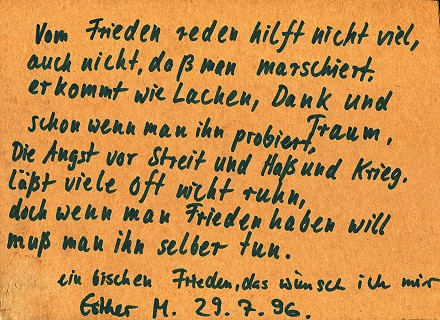 Vom Frieden reden hilft nicht viel,
auch nicht, daß man marschiert.
er kommt wie Lachen, Dank und
Traum,
schon wenn man ihn probiert,
Die Angst vor Streit und Haß und Krieg.
läßt viele oft nicht ruhn,
doch wenn man Frieden haben will
muß man ihn selber tun.
ein bischen Frieden, das wünsch ich mir
Esther M. 29.7.96.